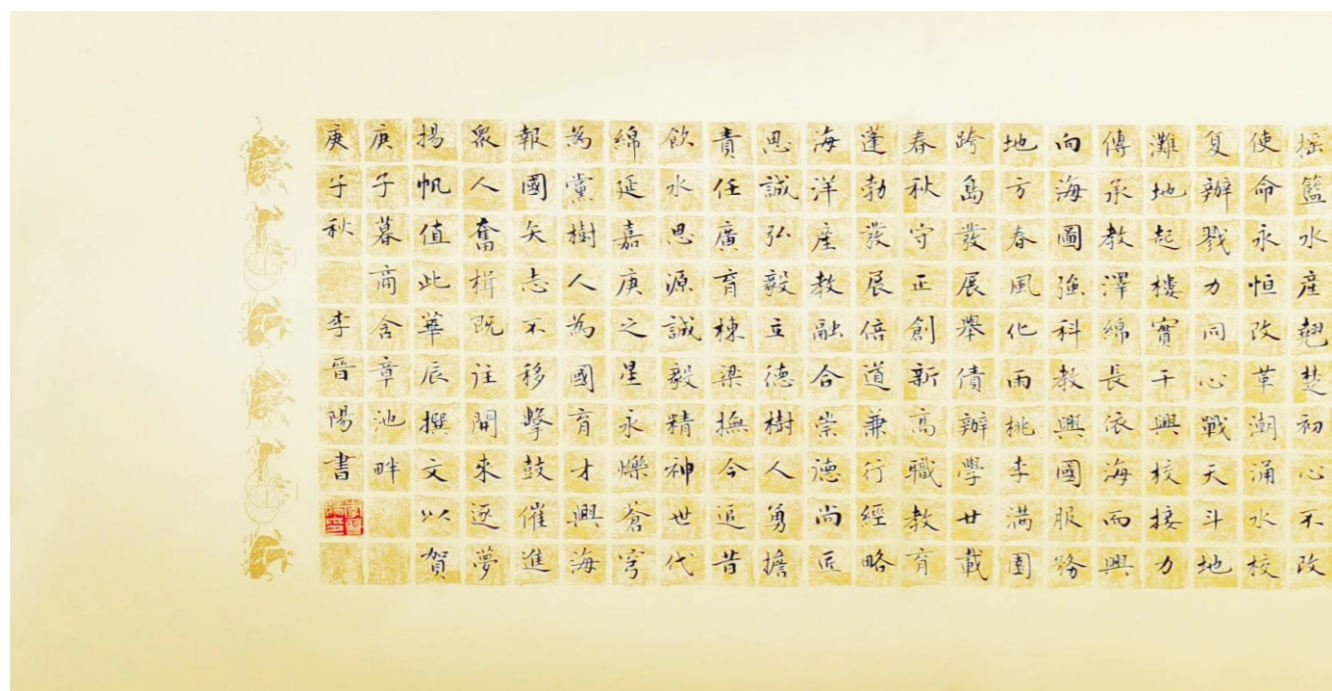 摇籃水產翹楚初心不改
使命永恒改革潮涌水校
复辦戮力同心戰天斗地
灘地起樓實干興校接力
傳承教澤綿長依海而興
向海圖強科教興國服務
地方春風化雨桃李滿園
跨島發展舉債辦學廿載
春秋守正創新高職教育
蓬勃發展倍道兼行經略
海洋產教融合崇德尚匠
思誠弘毅立德樹人勇擔
責任廣育棟梁撫今追昔
飲水思源誠毅精神世代
綿延嘉庚之星永爍蒼穹
為黨樹人為國育才興海
報國矢志不移擊鼓催進
眾人奮楫既往開來逐夢
揚帆值此華辰撰文以賀
庚子暮商舍章池畔
庚子秋 李晉陽書